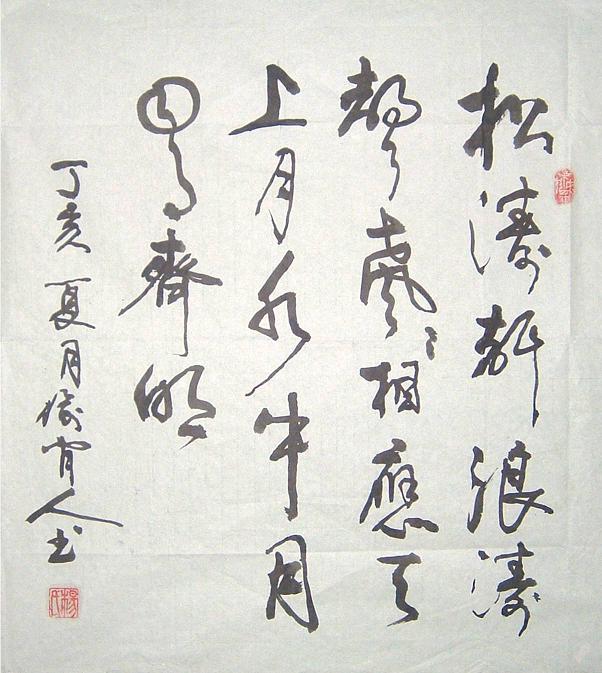 松濤聲浪濤
聲聲〻相應天
上月水中月
月月齊明
丁亥夏月人书
楊氏